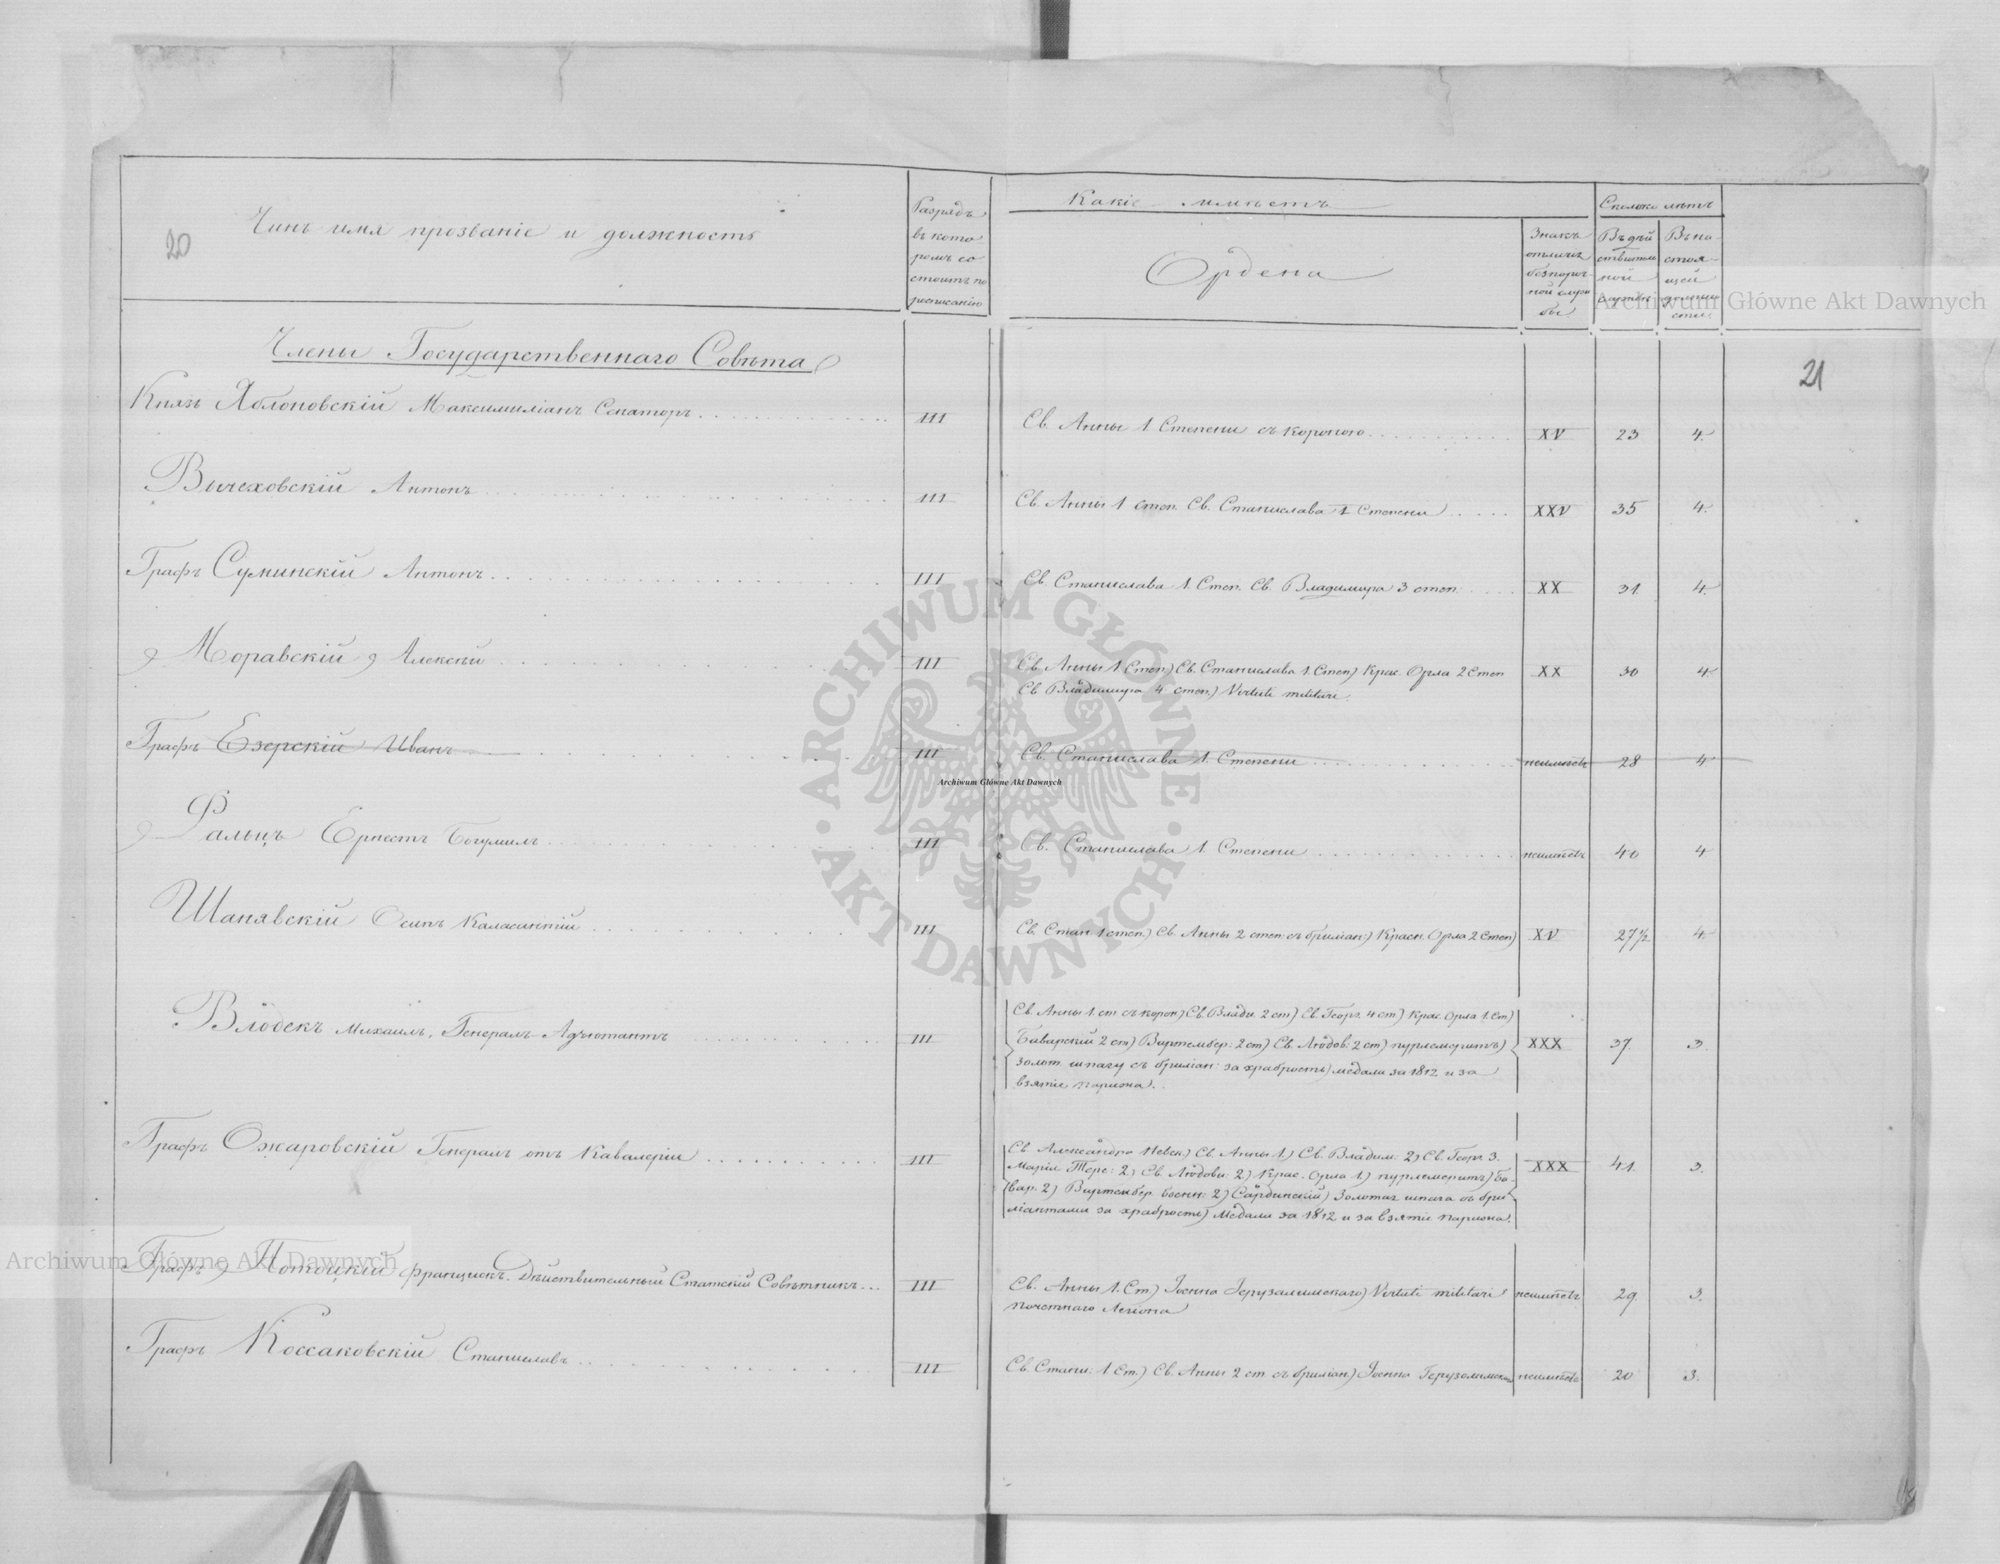 20
Чинъ имя прозваніе и должность
Разрядъ
въ кото
ромъ со
стоитъ по
росписанію
Какіе имѣетъ
Ордена
Знакъ
отличія
безпороч
ной служ
бы
Сколько лѣтъ
Въ дѣй
ствитель
ной
службѣ
Въ на
стоя
щей
должно
сти
Archiwum Główne Akt Dawnych
21
Члены Государственнаго Совѣта
Князь Яблоновскій Максимиліанъ Сенаторъ III Св. Анны 1 Степени съ короною XV 23 4.
Вычеховскій Антонъ III Св. Анны 1 степ. Св. Станислава 1 Степени XXV 35 4.
Графъ Суминскій Антонъ III Св. Станислава 1. Степ. Св. Владимира 3 степ. XX 31. 4.
Моравскій Алексѣй III Св. Анны 1 Степ.) Св. Станислава 1 Степ.) Крас. Орла 2 Степ XX 30 4
Св Владимира 4 степ.) Virtuti militari.
Графъ Езерскій Иванъ III Св. Станислава 1. Степени неимѣетъ 28 4
Archiwum Główne Akt Dawnych
Фальцъ Ернестъ Богумилъ III Св. Станислава 1. Степени неимѣетъ 40 4
Шанявскій Осипъ Каласантій III Св. Стан. 1 степ.) Св. Анны 2 степ. съ бриліан.) Красн. Орла 2 Степ) XV 27½ 4.
Влодекъ Михаилъ, Генералъ Адъютантъ III Св. Анны 1 ст съ корон) Св. Влади. 2 ст) Св. Георг. 4 ст) Крас. Орла 1. Ст) XXX 37. 3.
Баварскій 2 ст) Виртембер: 2 ст) Св. Людов: 2 ст) пурлемеритъ)
золот. шпагу съ бриліан: за храбрость) медали за 1812 и за
взятіе парижа.
Графъ Ожаровскій Генералъ отъ Кавалеріи III Св Александра Невск) Св. Анны 1) Св. Владим: 2) Св. Георг 3. XXX 41. 3.
Маріи Тере: 2) Св. Людови: 2) Крас. Орла 1) пурлемеритъ) Ба
вар. 2) Виртембер. военн: 2) Сардинскій) Золотая шпага съ бри
ліантами за храбрость) Медали за 1812 и за взятіе парижа.
Archiwum Główne Akt Dawnych
Графъ Потоцкій Францискъ. Дѣйствительный Статскій Совѣтникъ III Св. Анны 1. Ст) Іоенна Іерузалимскаго) Virtuti militari неимѣетъ 29. 3.
почетнаго Легіона
Графъ Коссаковскій Станиславъ III Св. Стани: 1 Ст.) Св. Анны 2 ст съ бриліан) Іоенна Іерузолимска неимѣетъ 20 3.
ARCHIWUM GŁÓWNE AKT DAWNYCH